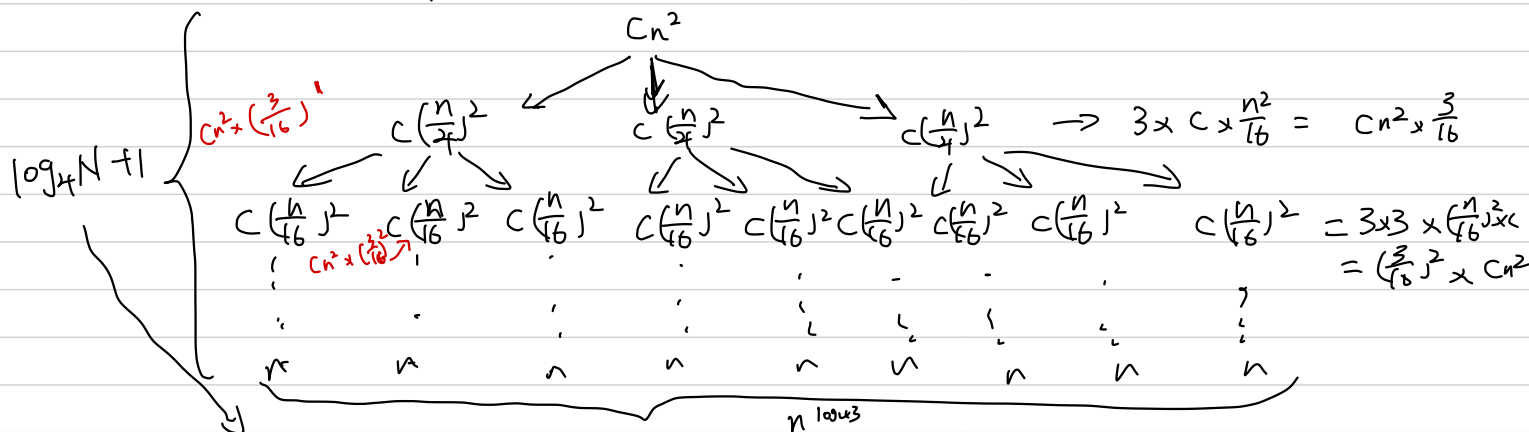 Cn²
Cn² × (3/16)¹
C(n/4)² C(n/4)² C(n/4)² → 3 × C × n²/16 = Cn² × 3/16
log₄N +1
C(n/16)² C(n/16)² C(n/16)² C(n/16)² C(n/16)² C(n/16)² C(n/16)² C(n/16)² C(n/16)² = 3×3 × (n/16)² × c
Cn² × (3/16)²
= (3/16)² × Cn²
n n n n n n n n n
n^log₄3